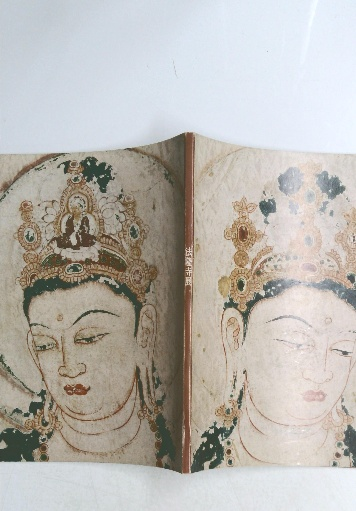 法隆寺展